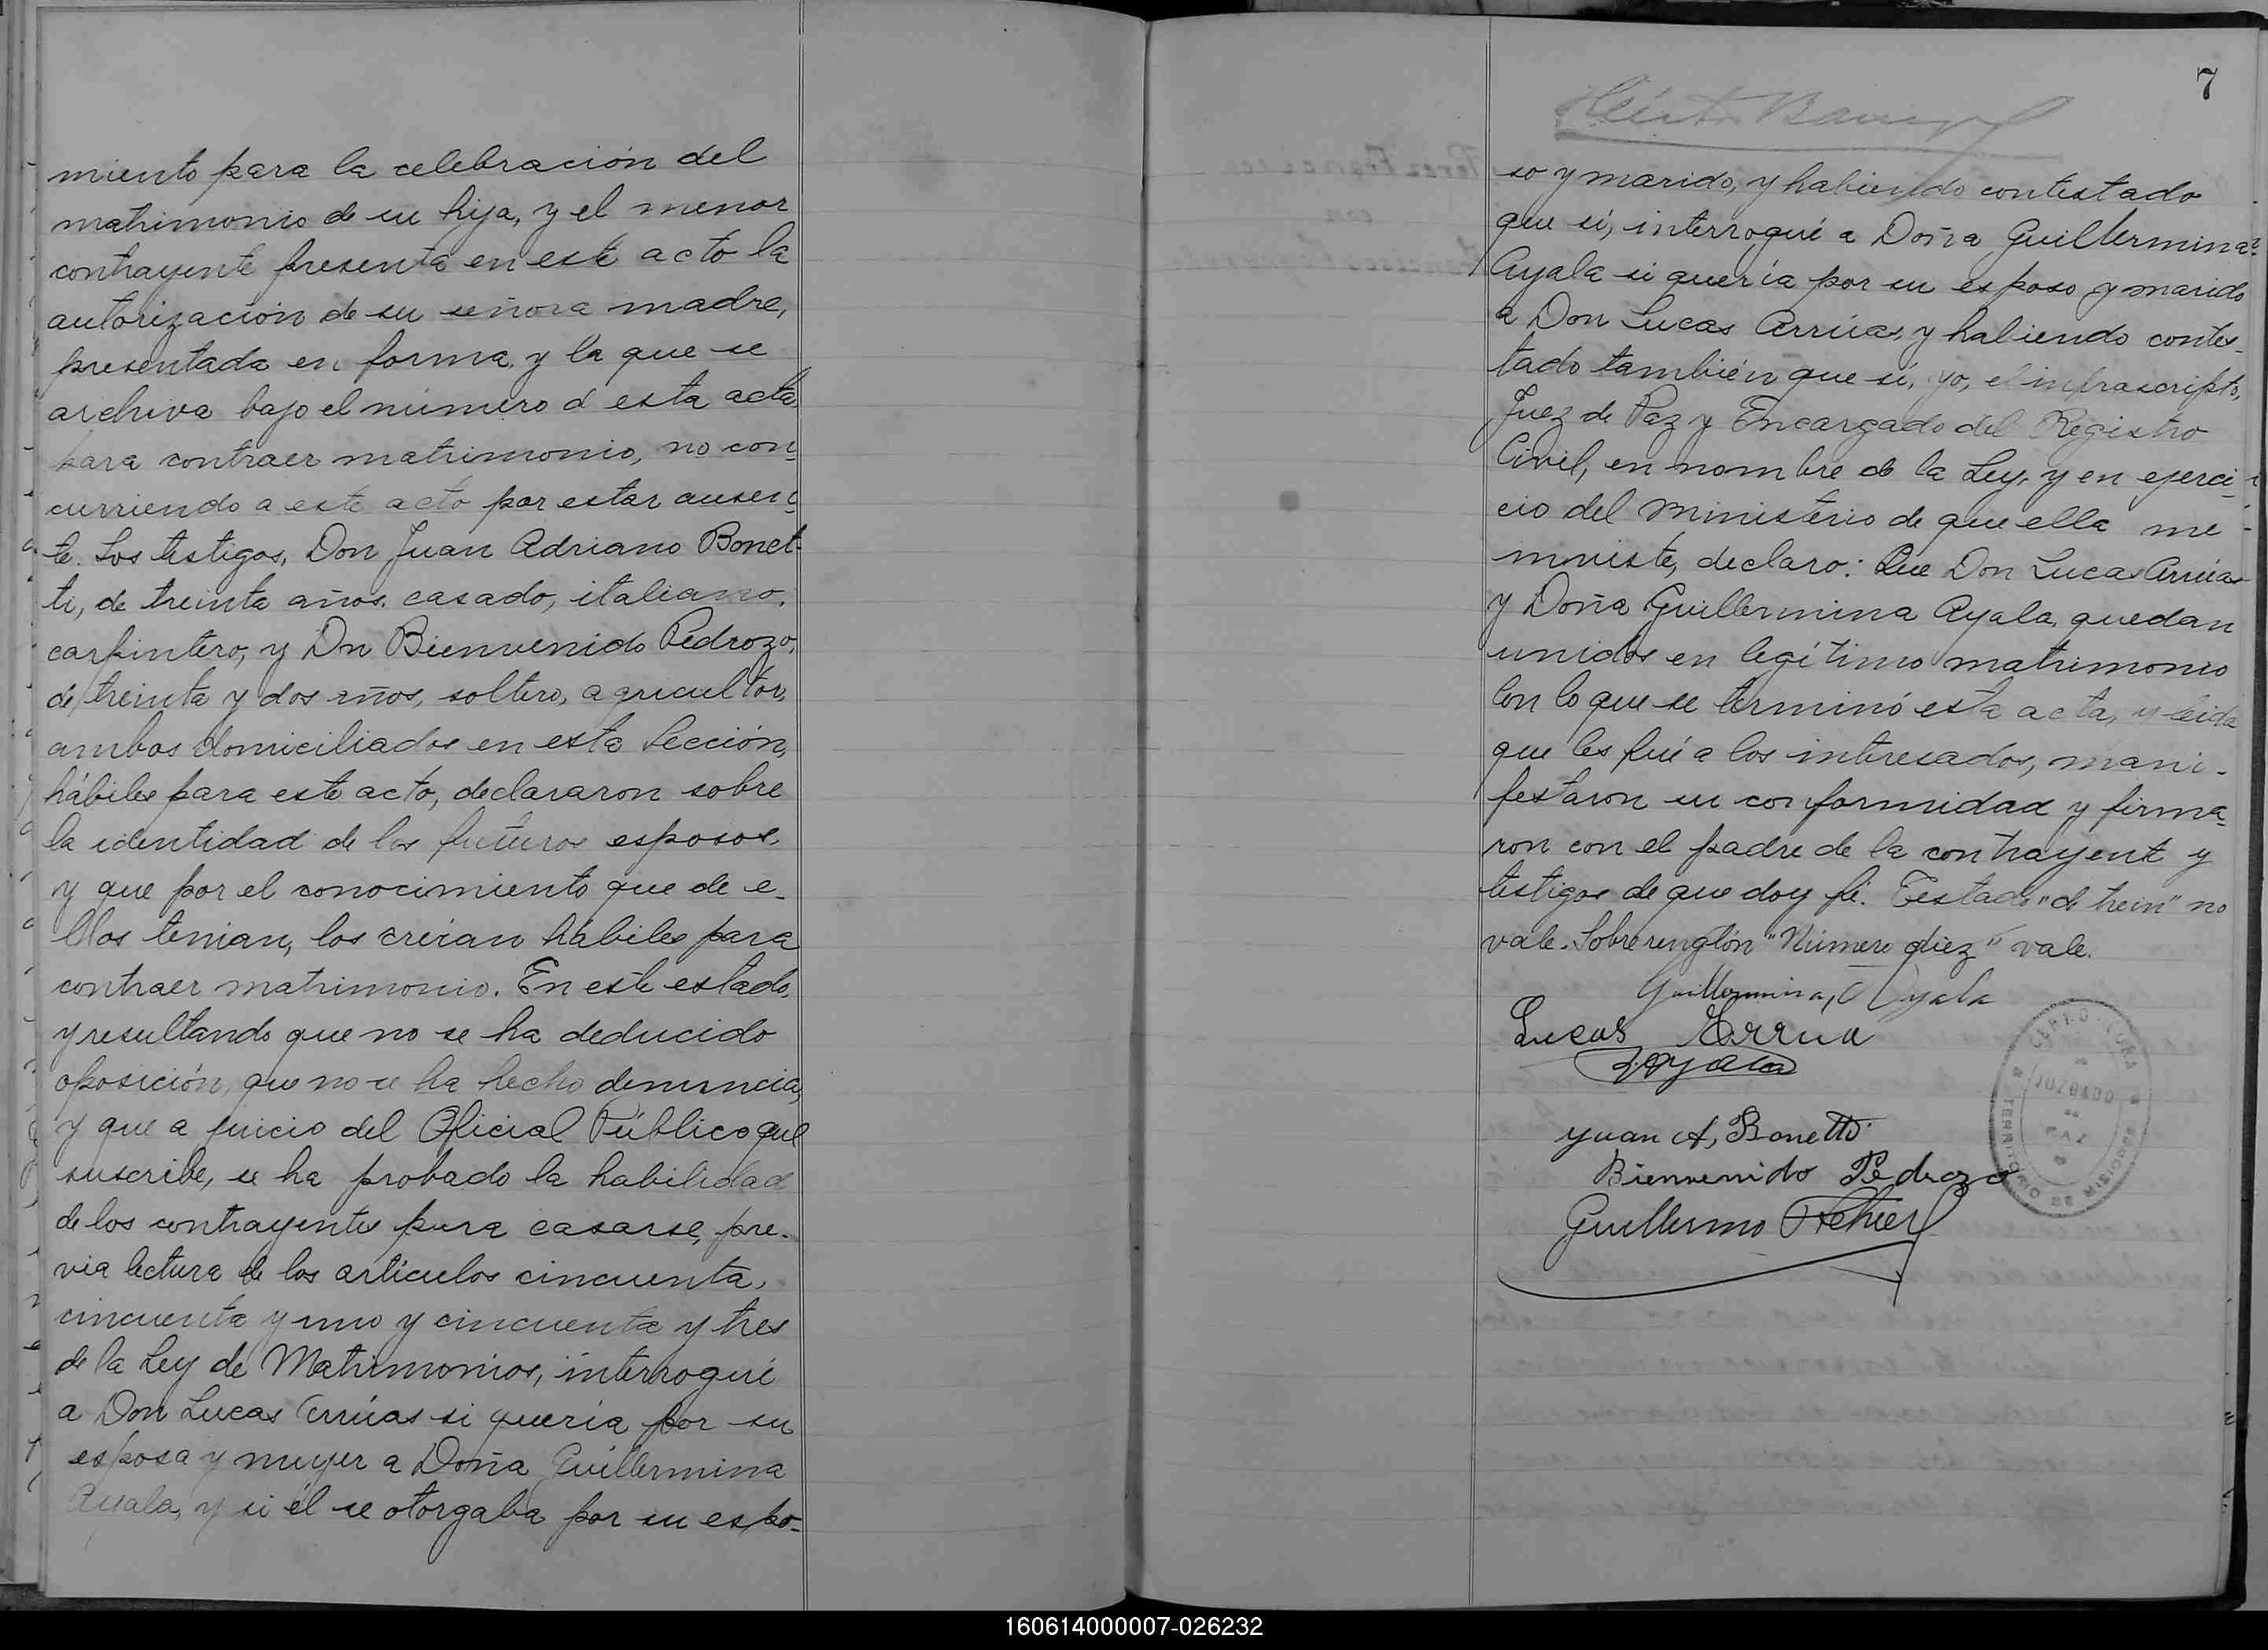 miento para la celebración del
matrimonio de su hija, y el menor
contrayente presenta en este acto la
autorización de su señora madre,
presentada en forma, y la que se
archiva bajo el número d esta acta,
para contraer matrimonio, no con-
curriendo a este acto por estar ausen-
te. Los testigos, Don Juan Adriano Bonet-
ti, de treinta años, casado, italiano,
carpintero, y Dn Bienvenido Pedrozo,
de treinta y dos años, soltero, agricultor,
ambos domiciliados en esta Sección,
hábiles para este acto, declararon sobre
la identidad de los futuros esposos,
y que por el conocimiento que de e-
llos tenian, los creían hábiles para
contraer matrimonio. En este estado,
y resultando que no se ha deducido
oposición, que no se ha hecho denuncia,
y que a juicio del Oficial Público que
suscribe, se ha probado la habilidad
de los contrayentes para casarse, pre-
via lectura de los artículos cincuenta,
cincuenta y uno y cincuenta y tres
de la Ley de Matrimonios, interrogué
a Don Lucas Arrúas si quería por su
esposa y mujer a Doña Guillermina
Ayala, y si él se otorgaba por su espo-
7
so y marido, y habiendo contestado
que sí, interrogué a Doña Guillermina
Ayala si quería por su esposo y marido
a Don Lucas Arrúas, y habiendo contes-
tado también que sí, yo, el infrascripto,
Juez de Paz y Encargado del Registro
Civil, en nombre de la Ley, y en ejerci-
cio del ministerio de que ella me
inviste, declaro: Que Don Lucas Arrúas
y Doña Guillermina Ayala, quedan
unidos en legítimo matrimonio
Con lo que se terminó esta acta, y leida
que les fué a los interesados, mani-
festaron su conformidad y firma-
ron con el padre de la contrayente y
testigos de que doy fé. Testado "de trein" no
vale. Sobrerenglón "Número diez" vale.
Guillermina, Ayala
Lucas Arrua
Ayala
Juan A, Bonetti
Bienvenido Pedrozo
Guillermo
CERRO-CORA
JUZGADO
DE
PAZ
TERRITORIO DE MISIONES
160614000007-026232